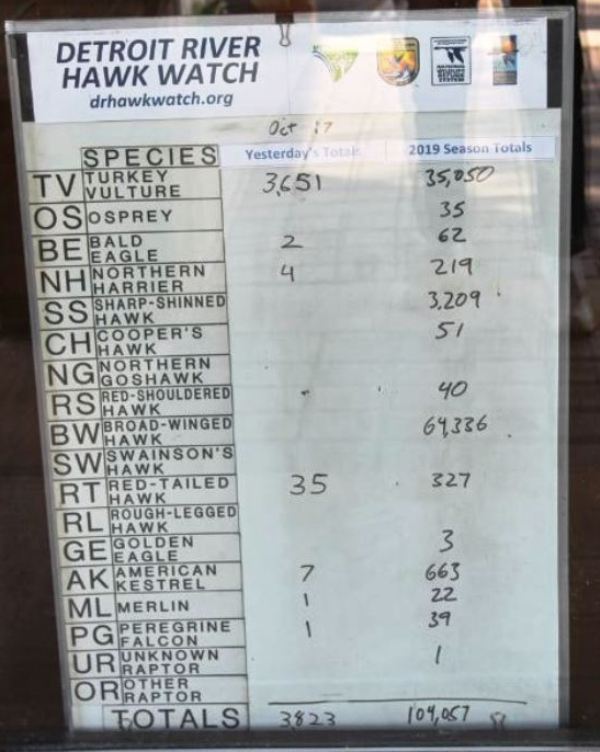 DETROIT RIVER
HAWK WATCH
drhawkwatch.org
Oct 17
SPECIES Yesterday's Totals 2019 Season Totals
TV TURKEY VULTURE 3,651 35,050
OS OSPREY 35
BE BALD EAGLE 2 62
NH NORTHERN HARRIER 4 219
SS SHARP-SHINNED HAWK 3,209
CH COOPER'S HAWK 51
NG NORTHERN GOSHAWK
RS RED-SHOULDERED HAWK 40
BW BROAD-WINGED HAWK 64,336
SW SWAINSON'S HAWK
RT RED-TAILED HAWK 35 327
RL ROUGH-LEGGED HAWK
GE GOLDEN EAGLE 3
AK AMERICAN KESTREL 7 663
ML MERLIN 1 22
PG PEREGRINE FALCON 1 39
UR UNKNOWN RAPTOR 1
OR OTHER RAPTOR
TOTALS 3823 104,057